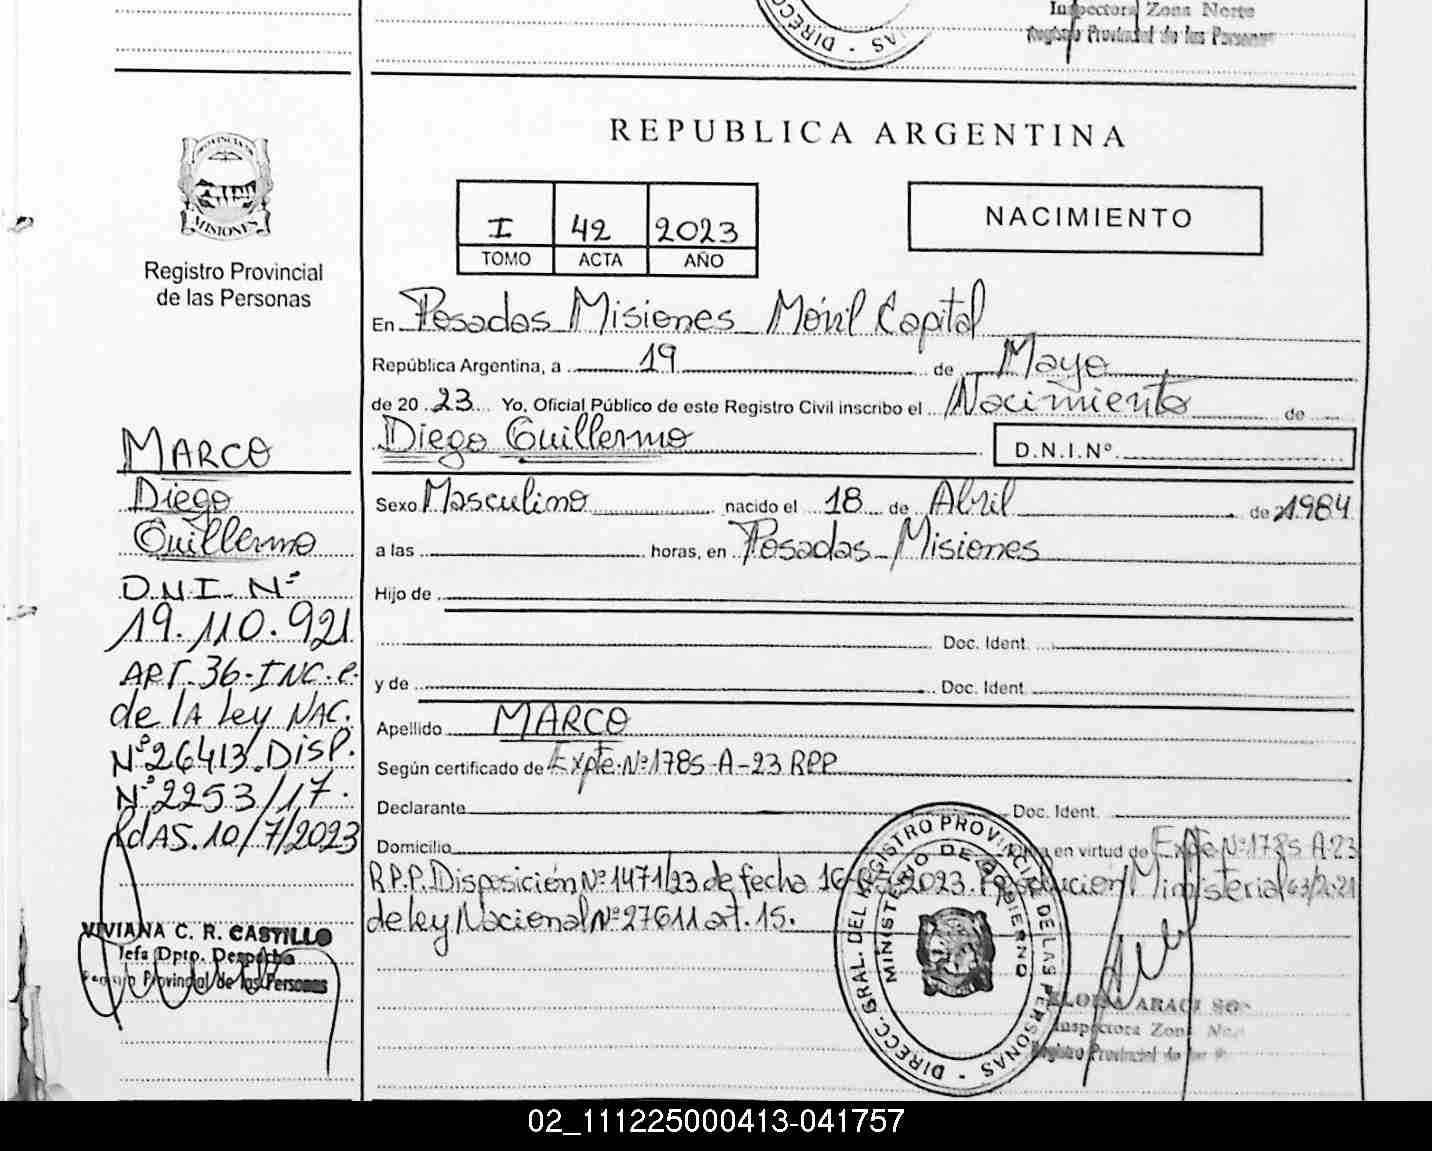 Inspectora Zona Norte
Registro Provincial de las Personas
DIRECC
AS - DIR
REPUBLICA ARGENTINA
PROVINCIA DE
MISIONES
Registro Provincial
de las Personas
I 42 2023
TOMO ACTA AÑO
NACIMIENTO
En Posadas Misiones Móvil Capital
República Argentina, a 19 de Mayo
de 20 23 Yo, Oficial Público de este Registro Civil inscribo el Nacimiento de
Diego Guillermo D.N.I.Nº
Sexo Masculino nacido el 18 de Abril de 1984
a las horas, en Posadas Misiones
Hijo de
Doc. Ident.
y de Doc. Ident.
Apellido MARCO
Según certificado de Expte. Nº 1785-A-23 RPP
Declarante Doc. Ident.
Domicilio en virtud de Expte Nº 1785 A-23
R.P.P. Disposición Nº 1471/23 de fecha 16 2023. Resolución Ministerial
de ley Nacional Nº 27611 art. 15.
MARCO
Diego
Guillermo
D.N.I. Nº
19.110.921
ART. 36-INC. e.
de lA ley NAC.
Nº 26413. DISP.
Nº 2253/17.
PdAS. 10/7/2023
VIVIANA C. R. CASTILLO
Jefa Dpto. Despacho
Registro Provincial de las Personas
DIRECC. GRAL. DEL REGISTRO PROVINCIAL DE LAS PERSONAS
MINISTERIO DE GOBIERNO
ARACI
Inspectora Zona
Registro Provincial de las P
02_111225000413-041757